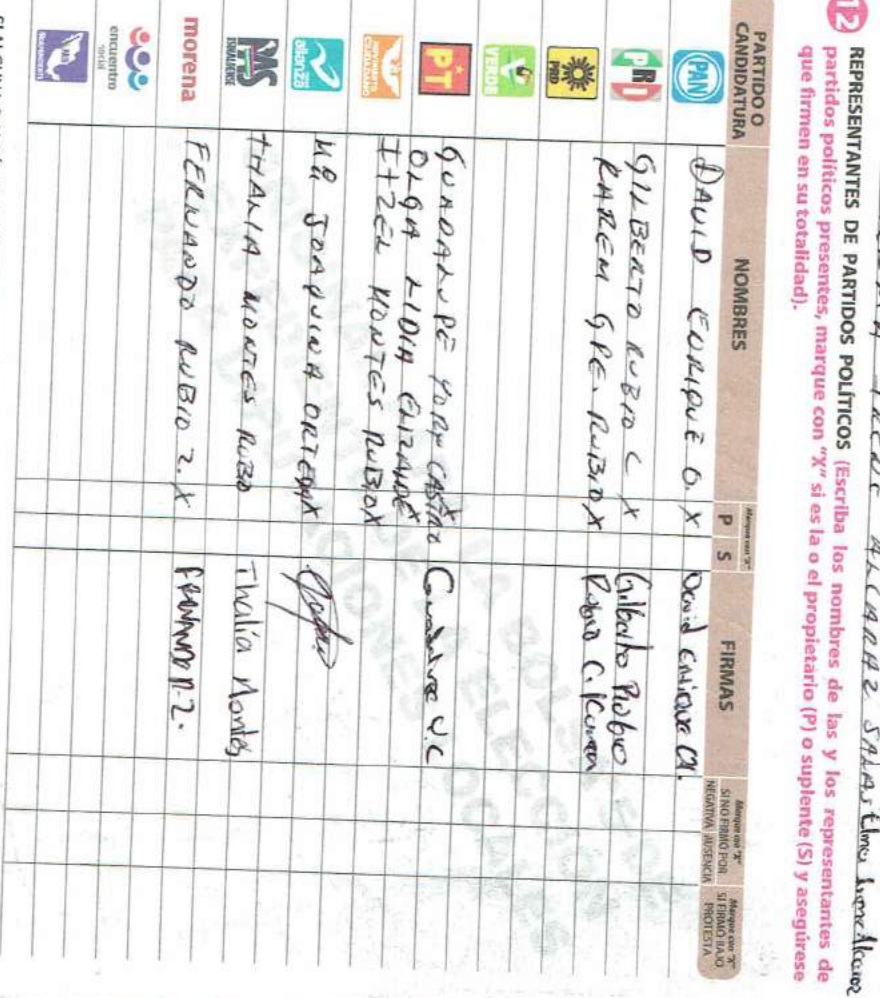 IRENE ALCARAZ SALAS
12 REPRESENTANTES DE PARTIDOS POLÍTICOS (Escriba los nombres de las y los representantes de
partidos políticos presentes, marque con "X" si es la o el propietario (P) o suplente (S) y asegúrese
que firmen en su totalidad).
PARTIDO O CANDIDATURA NOMBRES Marque con "X" P S FIRMAS Marque con "X" SI NO FIRMÓ POR NEGATIVA AUSENCIA Marque con "X" SI FIRMÓ BAJO PROTESTA
PAN DAVID ENRIQUE O. X David Enrique
PRI GILBERTO RUBIO C X Gilberto Rubio
KAREM GPE. RUBIO X Rubio C. Karem
PRD
VERDE
PT GUADALUPE YURY CASTRO X Guadalupe Y.C
OLGA LIDIA ELIZALDE X
MOVIMIENTO CIUDADANO ITZEL MONTES RUBIO X
alianza MA JOAQUINA ORTEGA X
PAS SINALOENSE THANIA MONTES RUBIO Thalía Montes
morena FERNANDO RUBIO Z. X FERNANDO R.Z.
encuentro social